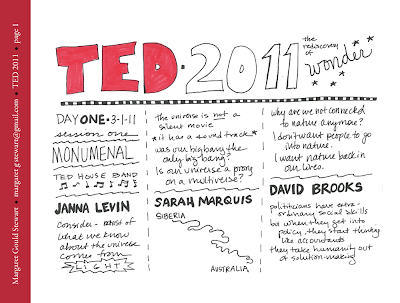 Margaret Gould Stewart • margaret.gstewart@gmail.com • TED 2011 • page 1
TED • 2011
the rediscovery of wonder
DAY ONE • 3-1-11
session one
MONUMENAL
TED HOUSE BAND
JANNA LEVIN
Consider - most of
what we know
about the universe
comes from
LIGHT
the universe is not a
silent movie
*it has a soundtrack*
was our big bang the
only big bang?
Is our universe a
on a multiverse?
SARAH MARQUIS
SIBERIA
AUSTRALIA
why are we not connected
to nature anymore?
I don't want people to go
into nature.
I want nature back in
our lives.
DAVID BROOKS
politicians have extra-
ordinary social skills
but when they get into
policy, they start thinking
like accountants
they take humanity out
of solution-making